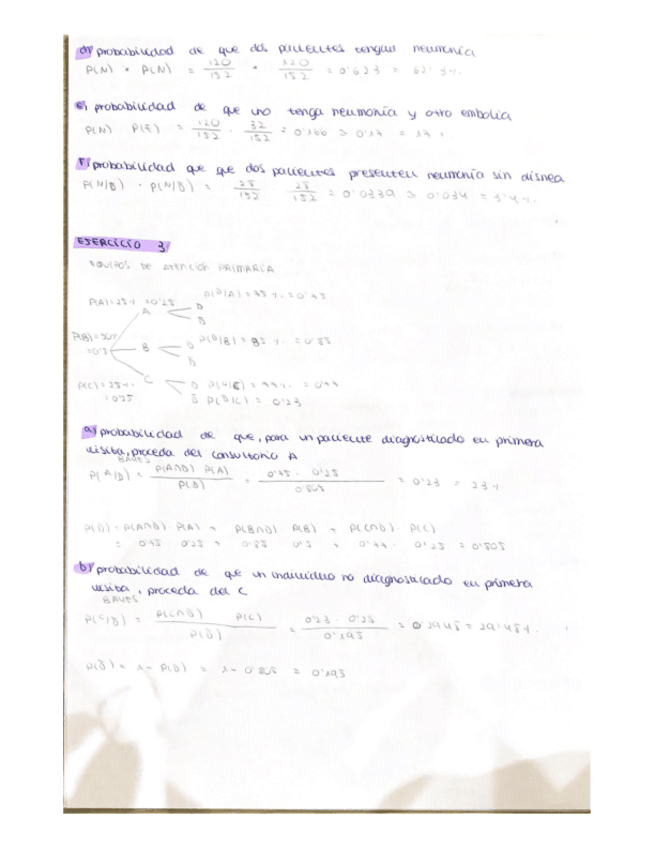 d) probabilidad de que dos pacientes tengan neumonía
P(N) · P(N) = 120/152 · 120/152 = 0'623 = 62'3%.
e) probabilidad de que uno tenga neumonía y otro embolia
P(N) P(E) = 120/152 · 32/152 = 0'166 ≃ 0'17 = 17%.
f) probabilidad que que dos pacientes presenten neumonía sin disnea
P(N/D̄) · P(N/D̄) = 28/152 28/152 = 0'0339 ≃ 0'034 = 3'4%.
EJERCICIO 3
EQUIPOS DE ATENCIÓN PRIMARIA
P(A)=25% =0'25 A D P(D/A)=
D̄
P(B)= =0'5 B D P(D/B)= = 0'85
D̄
P(C)=25%= 0'25 C D = 0'77
D̄ P(D̄/C) = 0'23
a) probabilidad de que, para un paciente diagnosticado en primera
visita, proceda del consultorio A
BAYES
P(A/D) = P(A∩D) P(A) / P(D) = 0'25 / = 0'23 = 23%
P(D) = P(A∩D)· P(A) + P(B∩D) P(B) + P(C∩D)· P(C)
= 0'25 + 0'85 0'5 + 0'25 = 0'805
b) probabilidad de que un individuo no diagnosticado en primera
visita, proceda del C
BAYES
P(C/D̄) = P(C∩D̄) P(C) / P(D̄) = 0'23 · 0'25 / 0'195 = 0'2948 = 29'48%.
P(D̄) = 1 - P(D) = 1 - = 0'195